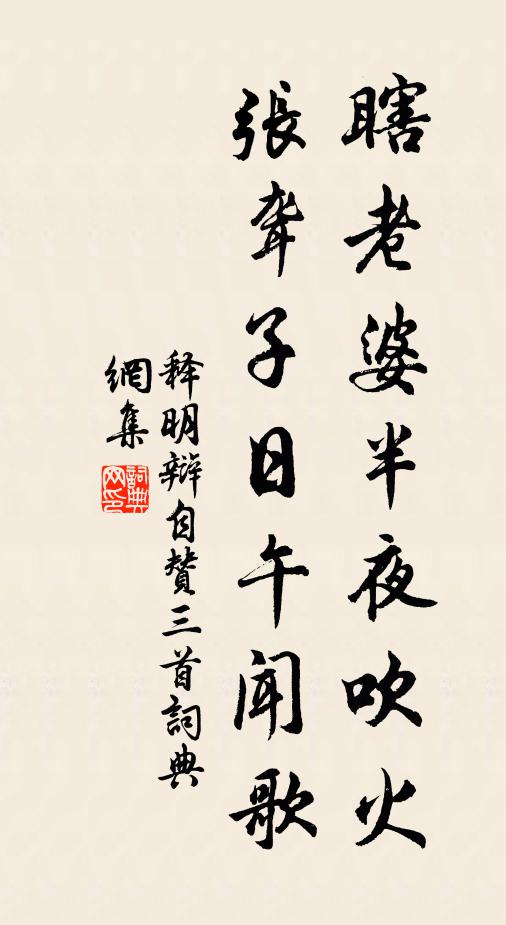 瞎老婆半夜吹火
張聾子日午聞歌
释明辯自赞三首詞典
網集
詞典
网印